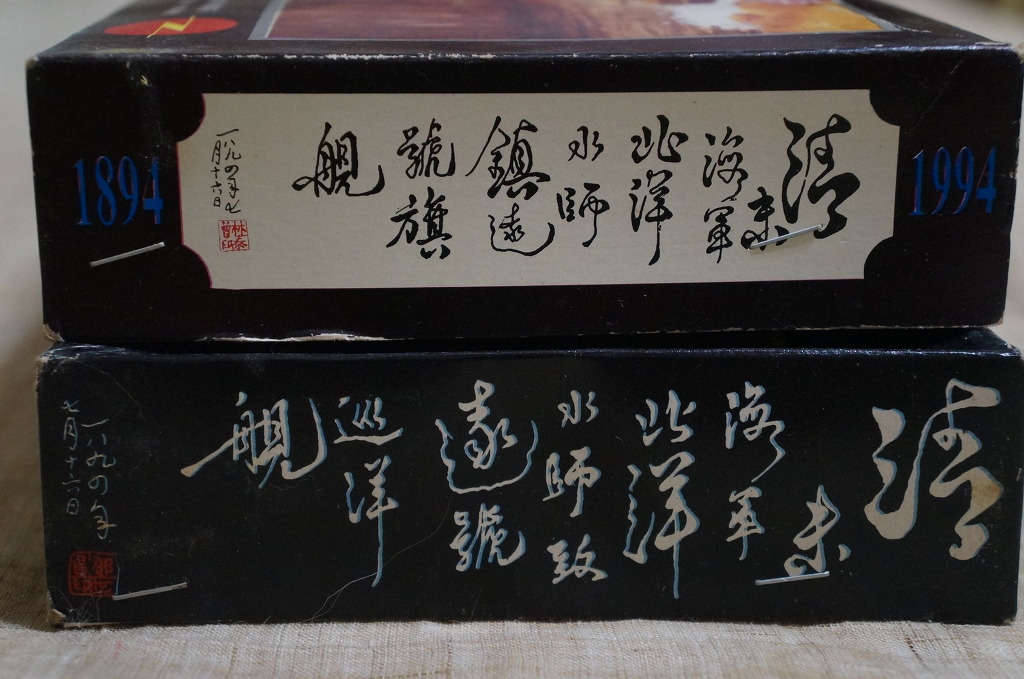 1894
清末
海軍
北洋
水師
鎮遠
號旗
艦
一八九四年七
月十六日
1994
清末
海軍
北洋
水師致
遠號
巡洋
艦
一八九四年
七月十六日